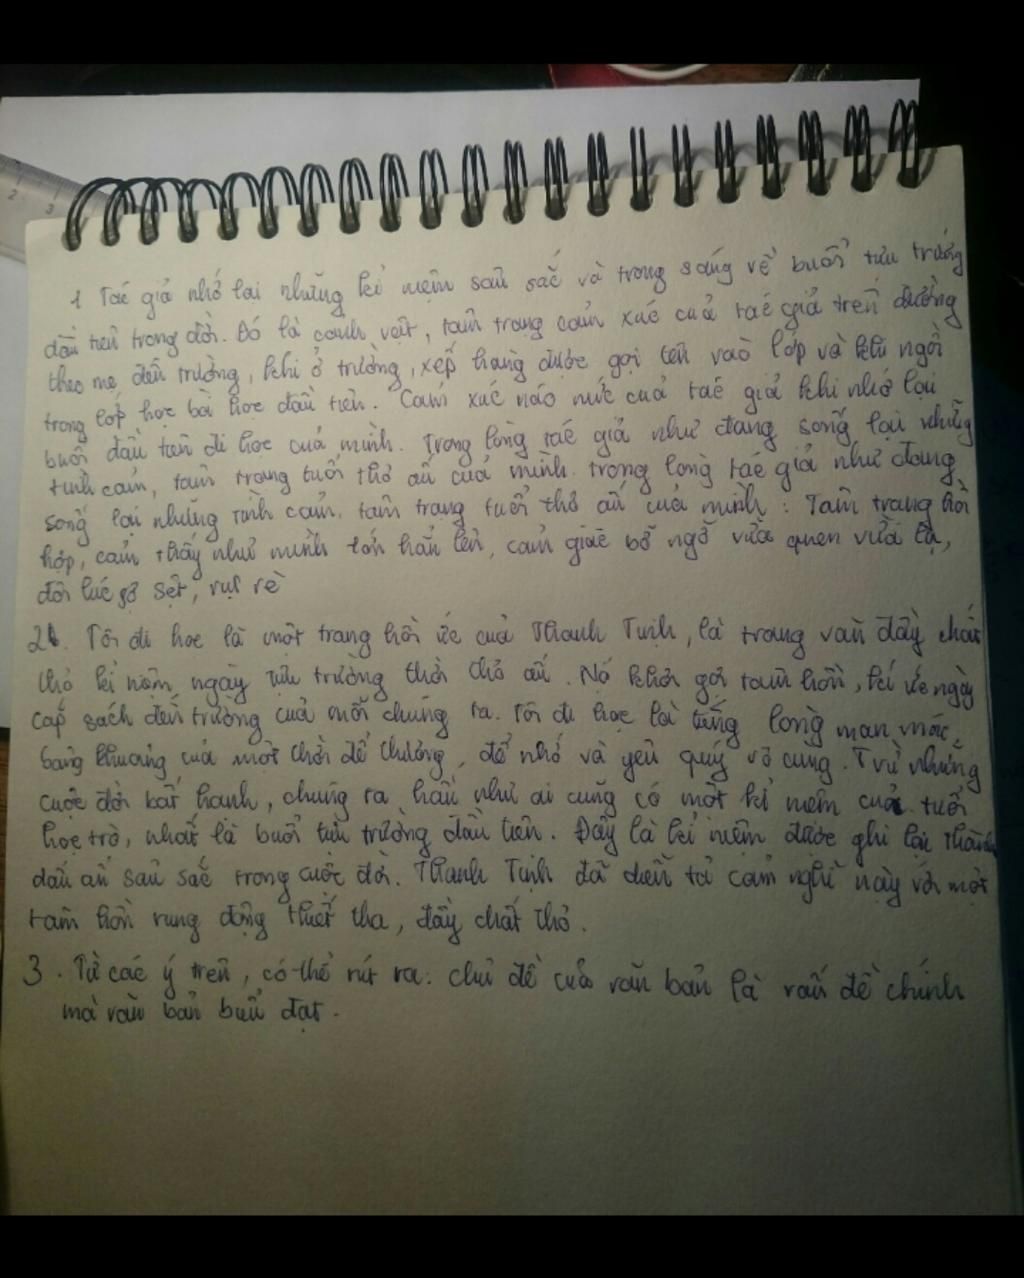 1 Tác giả nhớ lại những kỉ niệm sâu sắc và trong sáng về buổi tựu trường
đầu tiên trong đời. Đó là cảnh vật, tâm trạng cảm xúc của tác giả trên đường
theo mẹ đến trường, khi ở trường, xếp hàng được gọi tên vào lớp và khi ngồi
trong lớp học bài học đầu tiên. Cảm xúc náo nức của tác giả khi nhớ lại
buổi đầu tiên đi học của mình. Trong lòng tác giả như đang sống lại những
tình cảm, tâm trạng tuổi thơ ấu của mình. trong lòng tác giả như đang
sống lại những tình cảm, tâm trạng tuổi thơ ấu của mình: Tâm trạng hồi
hộp, cảm thấy như mình lớn hẳn lên, cảm giác bỡ ngỡ vừa quen vừa lạ,
đôi lúc sợ sệt, rụt rè
2. Tôi đi học là một trang hồi ức của Thanh Tịnh, là trang văn đầy chất
thơ kỉ niệm ngày tựu trường thời thơ ấu. Nó khơi gợi tâm hồn, kí ức ngày
cắp sách đến trường của mỗi chúng ta. Tôi đi học là tiếng lòng man mác,
bâng khuâng của một thời dễ thương, dễ nhớ và yêu quý vô cùng. Trừ những
cuộc đời bất hạnh, chúng ta hầu như ai cũng có một kỉ niệm của tuổi
học trò, nhất là buổi tựu trường đầu tiên. Đây là kỉ niệm được ghi lại thành
dấu ấn sâu sắc trong cuộc đời. Thanh Tịnh đã diễn tả cảm nghĩ này với một
tâm hồn rung động thiết tha, đầy chất thơ.
3. Từ các ý trên, có thể rút ra: chủ đề của văn bản là vấn đề chính
mà văn bản biểu đạt.